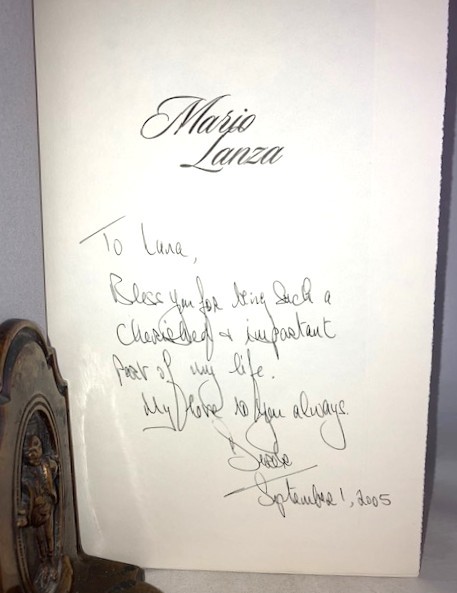 Mario
Lanza
To Luna,
Bless you for being such a
cherished & important
part of my life.
My love to you always.
September 1, 2005